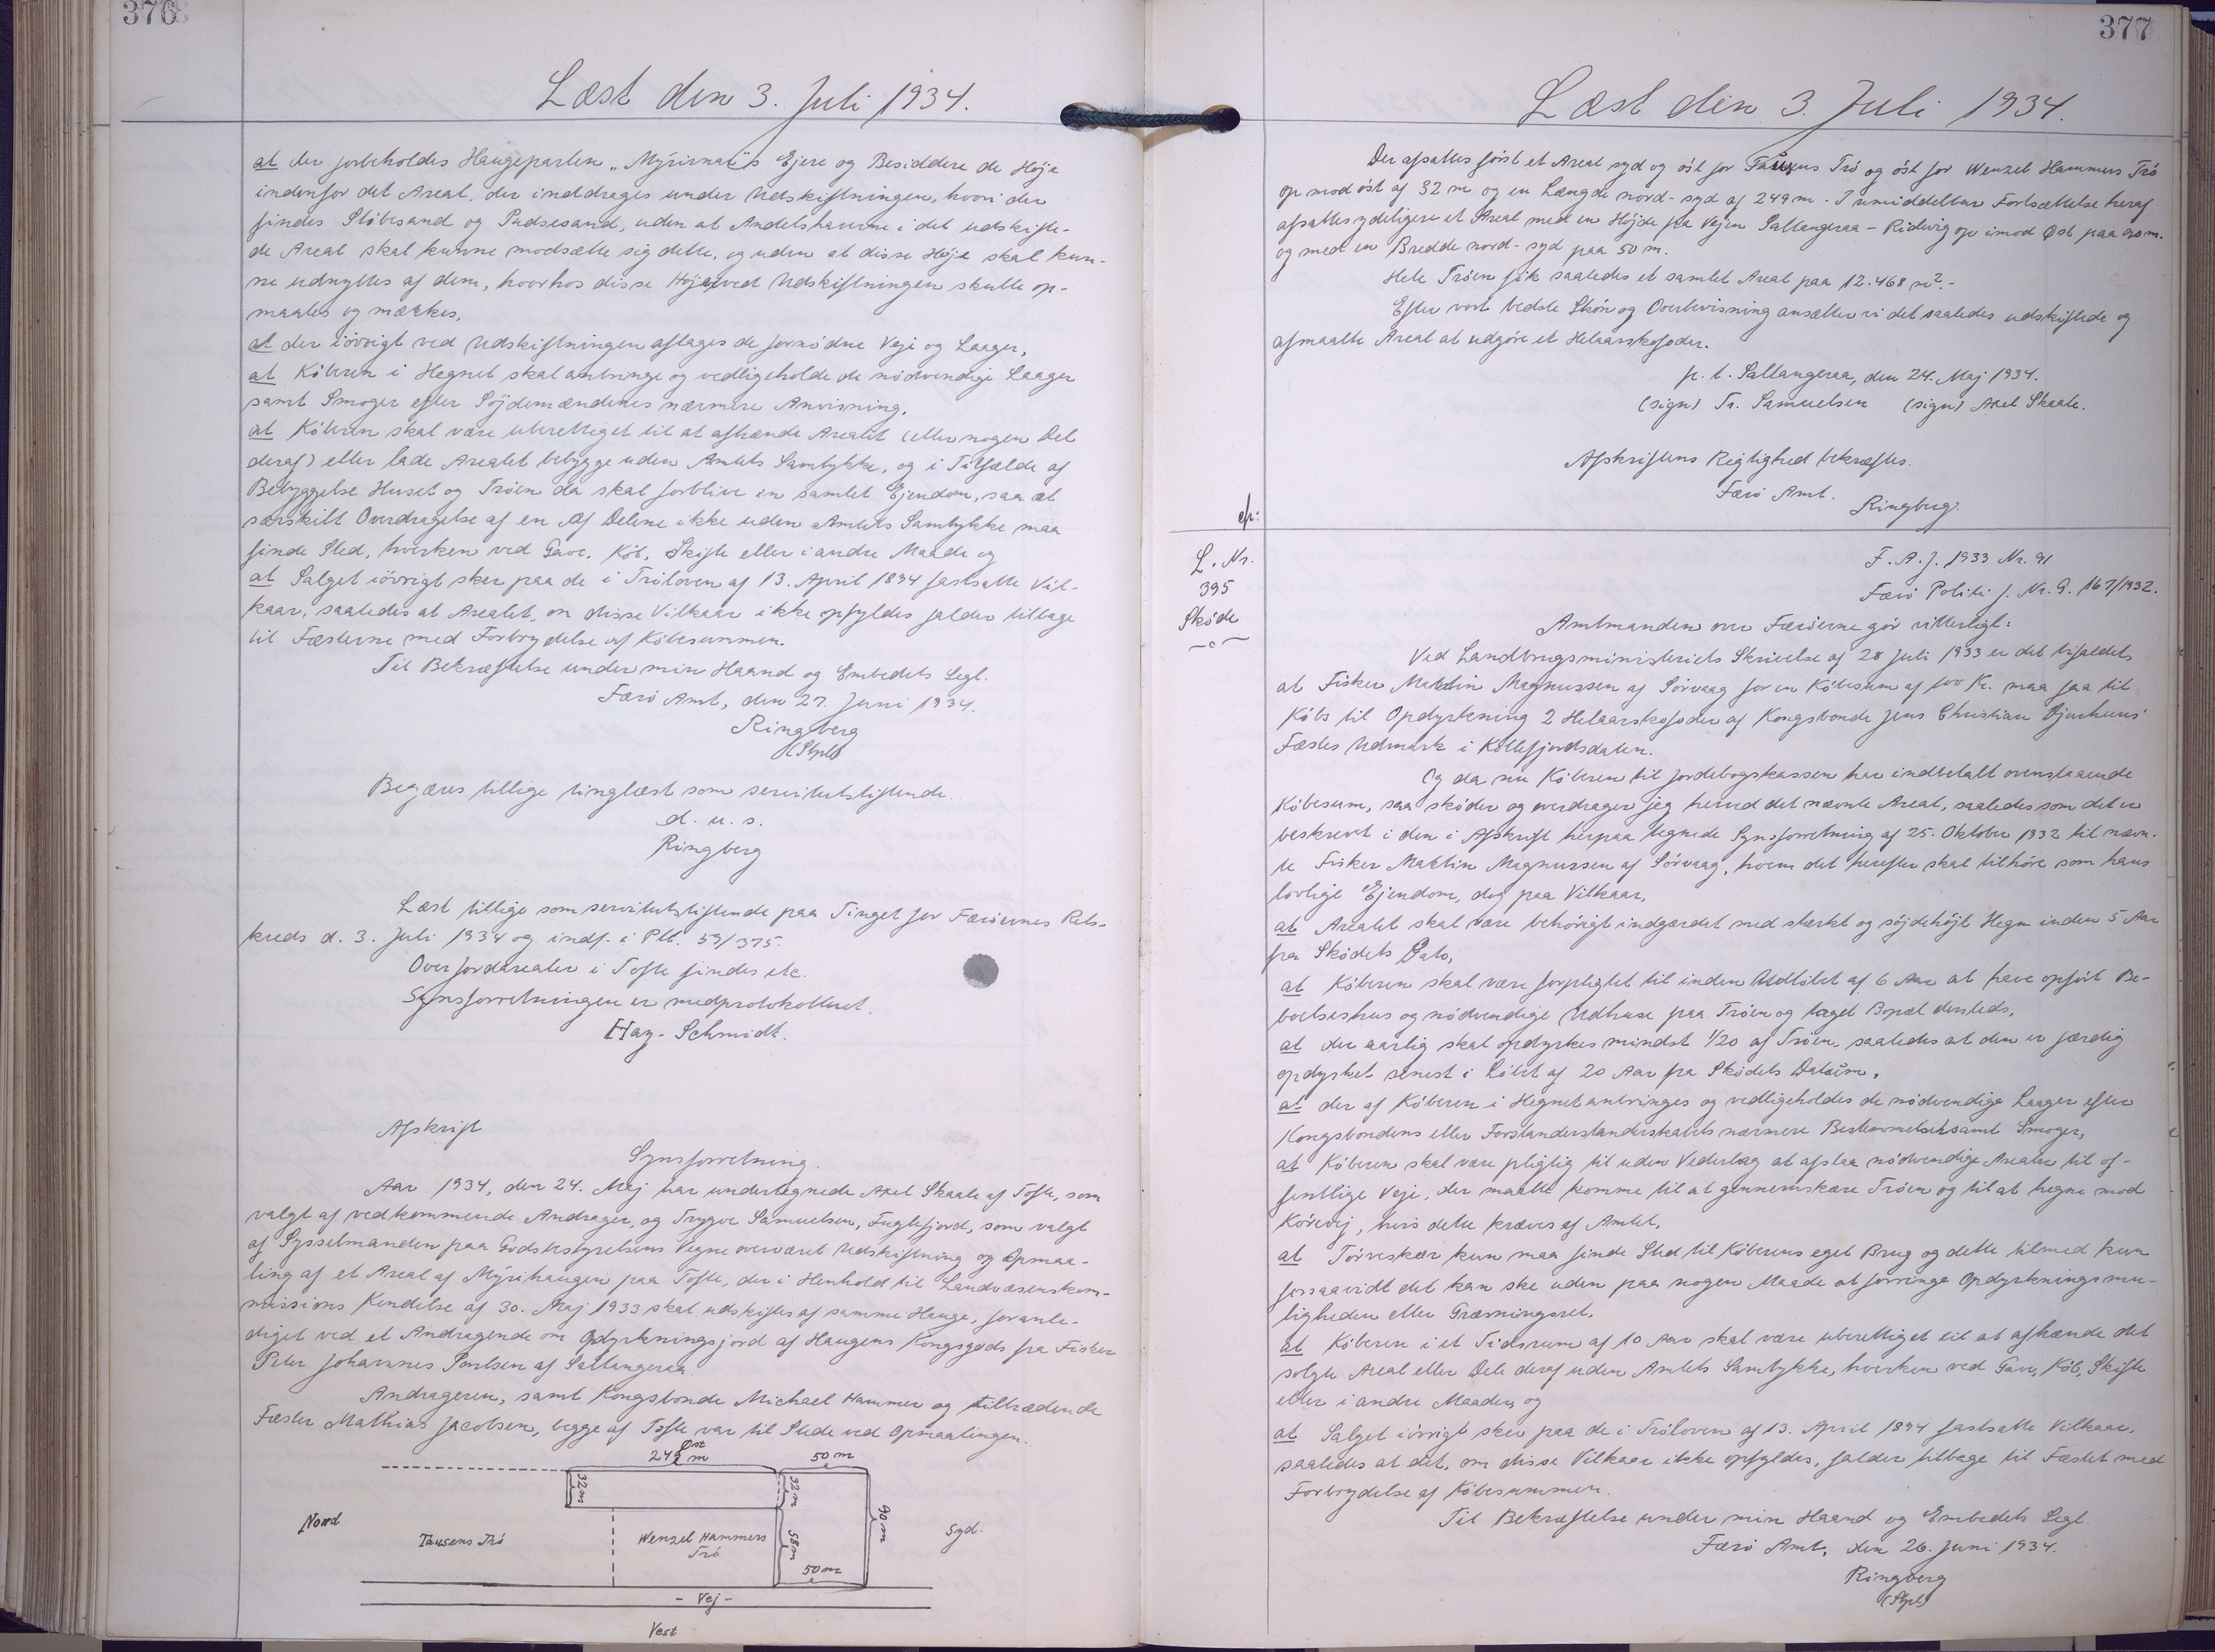 376
Læst den 3. Juli 1934.
at der forbeholdes Haugeparten „Mýrirnar"s Ejere og Besiddere de Høje
indenfor det Areal, der inddrages under Udskiftningen, hvori der
findes Støbesand og Pudsesand, uden at Andelshaverne i det udskifte-
de Areal skal kunne modsætte sig dette, og uden at disse Høje skal kun-
ne udnyttes af dem, hvorhos disse Høje ved Udskiftningen skulle op-
maales og mærkes,
at der iøvrigt ved Udskiftningen aftages de fornødne Veje og Laager,
at Køberen i Hegnet skal anbringe og vedligeholde de nødvendige Laager
samt Smoger efter Søjdemændenes nærmere Anvisning,
at Køberen skal være uberettiget til at afhænde Arealet (eller nogen Del
deraf) eller lade Arealet bebygge uden Amtets Samtykke, og i Tilfælde af
Bebyggelse Huset og Trøen da skal forblive en samlet Ejendom, saa at
særskilt Overdragelse af en af Delene ikke uden Amtets Samtykke maa
finde Sted, hverken ved Gave, Køb, Skifte eller i andre Maade og
at Salget iøvrigt sker paa de i Trøloven af 13. April 1894 fastsatte Vil-
kaar, saaledes at Arealet, om disse Vilkaar ikke opfyldes falder tilbage
til Fæsterne med Forbrydelse af Købesummen.
Til Bekræftelse under min Haand og Embedets Segl.
Færø Amt, den 27. Juni 1934.
Ringberg
(Stpl)
Begæres tillige tinglæst som servitutstiftende.
d. u. s.
Ringberg
Læst tillige som servitutstiftende paa Tinget for Færøernes Rets-
kreds d. 3. Juli 1934 og indf. i Ptl. 59/375.
Over Jordarealer i Tofte findes etc.
Synsforretningen er medprotokolleret.
Hay-Schmidt.
Afskrift
Synsforretning.
Aar 1934, den 24. Maj har undertegnede Axel Skaale af Tofte, som
valgt af vedkommende Andrager, og Trygve Samuelsen, Fuglefjord, som valgt
af Sysselmanden paa Godsbestyrelsens Vegne overværet Udskiftning og Opmaa-
ling af et Areal af Mýrihaugen paa Tofte, der i Henhold til Landvæsenskom-
missions Kendelse af 30. Maj 1933 skal udskiftes af samme Hauge, foranle-
diget ved et Andragende om Opdyrkningsjord af Haugens Kongsgods fra Fisker
Peter Johannes Poulsen af Saltangeraa.
Andrageren, samt Kongsbonde Michael Hammer og tiltrædende
Fæster Mathias Jacobsen, begge af Tofte var til Stede ved Opmaalingen.
Øst
249 m
50 m
32 m
32 m
90 m
58 m
50 m
Nord
Tausens Trø
Wenzel Hammers
Trø
Syd.
- Vej -
Vest
377
Læst den 3. Juli 1934.
Der afsattes først et Areal syd og øst for Tausens Trø og øst for Wenzel Hammers Trø
op mod øst af 32 m og en Længde nord-syd af 249 m. I umiddelbar Fortsættelse heraf
afsattes ydeligere et Areal med en Højde fra Vejen Saltangraa - Ridevig op imod Øst paa 90 m.
og med en Bredde nord-syd paa 50 m.
Hele Trøen fik saaledes et samlet Areal paa 12.468 m². -
Efter vort bedste Skøn og Overbevisning ansætter vi det saaledes udskiftede og
afmaalte Areal at udgøre et Helaarskofoder.
p. t. Saltangeraa, den 24. Maj 1934.
(sign) Tr. Samuelsen (sign) Axel Skaale.
Afskriftens Rigtighed bekræftes.
Færø Amt.
Ringberg.
L. Nr.
395
Skøde
F. A. J. 1933 Nr. 91
Færø Politi J. Nr. G. 167/1932.
Amtmanden over Færøerne gør vitterligt:
Ved Landbrugsministeriets Skrivelse af 28 Juli 1933 er det bifaldet,
at Fisker Martin Magnussen af Sørvaag for en Købesum af 100 Kr. maa faa til
Købs til Opdyrkning 2 Helaarskofoder af Kongsbonde Jens Christian Djurhuus'
Fæstes Udmark i Kollefjordsdalen.
Og da nu Køberen til Jordebogskassen har indbetalt ovenstaaende
Købesum, saa skøder og overdrager jeg herved det nævnte Areal, saaledes som det er
beskrevet i den i Afskrift herpaa tegnede Synsforretning af 25. Oktober 1932 til nævn-
te Fisker Martin Magnussen af Sørvaag, hvem det herefter skal tilhøre som hans
lovlige Ejendom, dog paa Vilkaar,
at Arealet skal være behørigt indgærdet med stærkt og søjdehøjt Hegn inden 5 Aar
fra Skødets Dato,
at Køberen skal være forpligtet til inden Udløbet af 6 Aar at have opført Be-
boelseshus og nødvendige Udhuse paa Trøen og taget Bopæl dersteds,
at der aarlig skal opdyrkes mindst 1/20 af Trøen, saaledes at den er færdig
opdyrket senest i Løbet af 20 Aar fra Skødets Datum,
at der af Køberen i Hegnet anbringes og vedligeholdes de nødvendige Laager efter
Kongsbondens eller Forstanderskabets nærmere Bestemmelser samt Smoger,
at Køberen skal være pligtig til uden Vederlag at afstaa nødvendige Arealer til of-
fentlige Veje, der maatte komme til at gennemskære Trøen og til at hegne mod
Kørevej, hvis dette kræves af Amtet,
at Tørveskær kun maa finde Sted til Køberens eget Brug og dette tilmed kun
forsaavidt det kan ske uden paa nogen Maade at forringe Opdyrkningsmu-
ligheden eller Græsningsret,
at Køberen i et Tidsrum af 10 Aar skal være uberettiget til at afhænde det
solgte Areal eller Dele deraf uden Amtets Samtykke, hverken ved Gave, Køb, Skifte
eller i andre Maader, og
at Salget iøvrigt sker paa de i Trøloven af 13. April 1894 fastsatte Vilkaar,
saaledes at det, om disse Vilkaar ikke opfyldes, falder tilbage til Fæstet med
Forbrydelse af Købesummen.
Til Bekræftelse under min Haand og Embedets Segl.
Færø Amt, den 26. Juni 1934.
Ringberg
(Stpl)